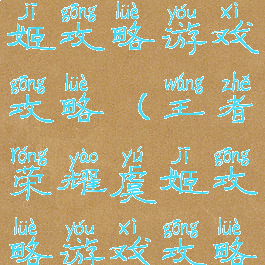 jī gōng lüè yóu xì
姬攻略游戏
gōng lüè wáng zhě
攻略(王者
róng yào yú jī gōng
荣耀虞姬攻
lüè yóu xì gōng lüè
略游戏攻略